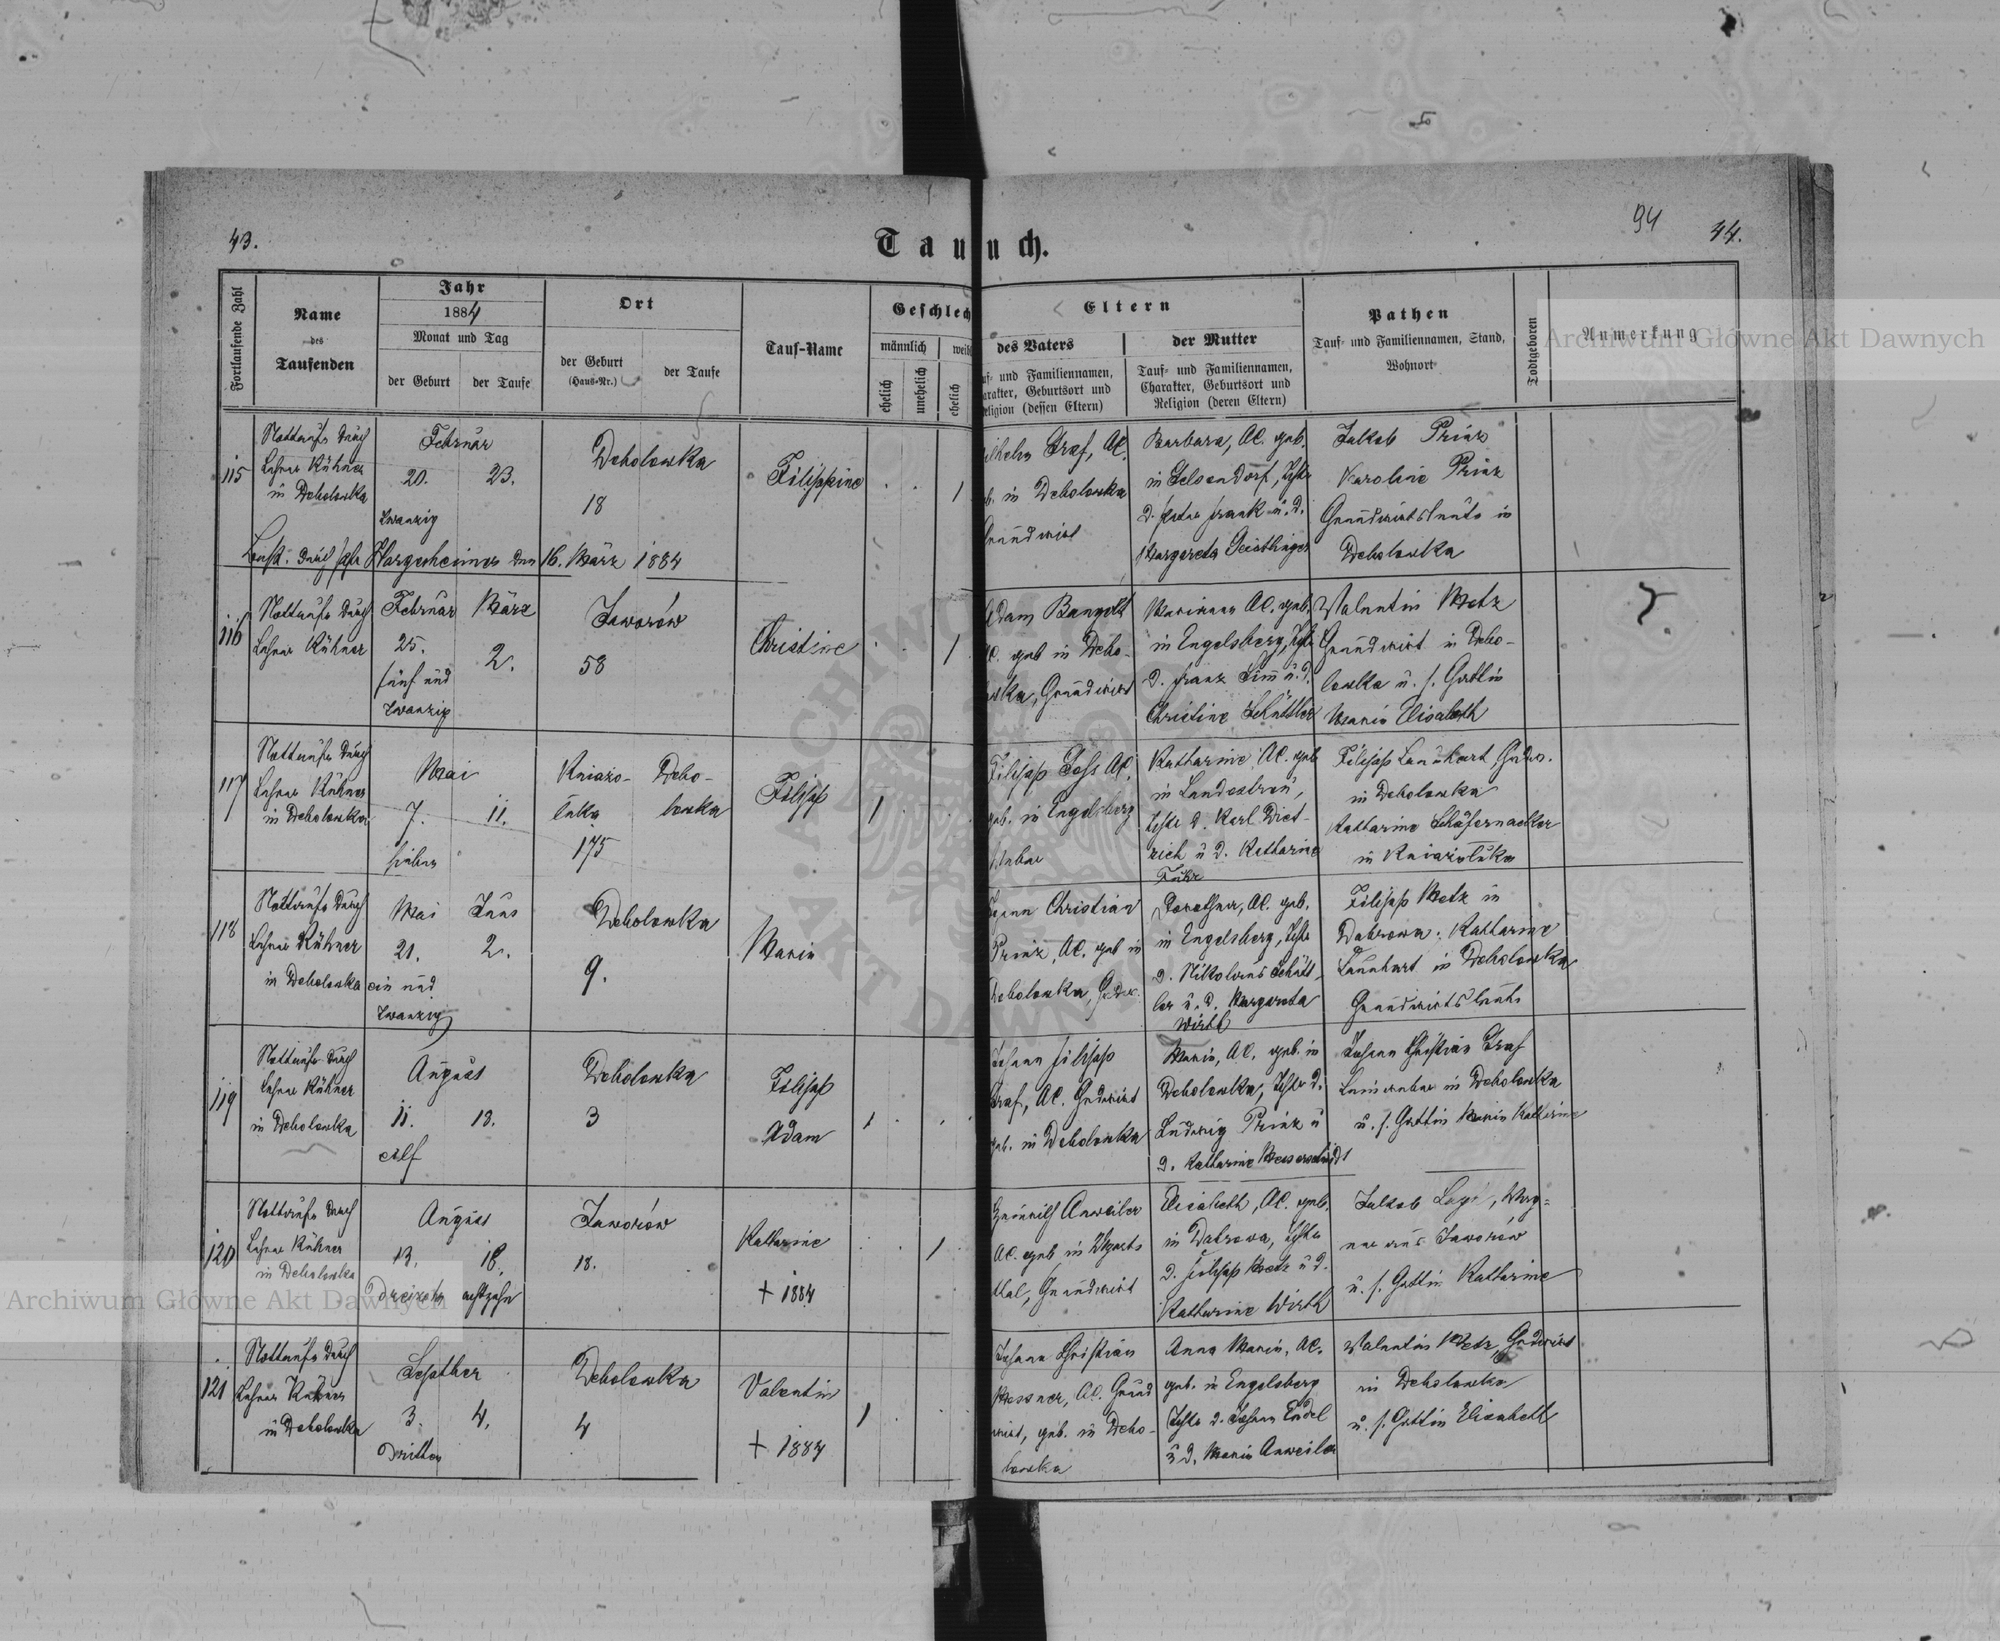 43.
94
44.
Tau uch.
Fortlaufende Zahl
Name
des
Taufenden
Jahr
1884
Monat und Tag
der Geburt
der Taufe
Ort
der Geburt
(Haus-Nr.)
der Taufe
Tauf-Name
Geschlech
männlich
weib
ehelich
unehelich
ehelich
Eltern
des Vaters
uf- und Familiennamen,
arakter, Geburtsort und
eligion (dessen Eltern)
der Mutter
Tauf- und Familiennamen,
Charakter, Geburtsort und
Religion (deren Eltern)
Pathen
Tauf- und Familiennamen, Stand,
Wohnort
Todtgeboren
Anmerkung
Archiwum Główne Akt Dawnych
115
Nottaufe durch
Lehrer Kühner
in Debolowka
Februar
20.
23.
zwanzig
Debolowka
18
Filippine
1
ilhelm Graf, AC.
b. in Debolowka
Grundwirt
Barbara, AC. geb.
in Gelsendorf, Tchtr
d. Peter Frank u. d.
Margareta
Jakob Prinz
Karoline Prinz
Grundwirtsleute in
Debolowka
durch Pfr Hargesheimer den 16. März 1884
116
Nottaufe durch
Lehrer Kühner
Februar
25.
fünf und
zwanzig
März
2.
Jaworów
58
Christine
1
Adam
AC. geb in Debo-
wka, Grundwirt
Marianna AC. geb.
in Engelsberg, Tcht.
d. Franz u. d.
Christine Schüttler
Valentin Metz
Grundwirt in Debo-
lowka u. s. Gattin
Maria Elisabeth
117
Nottaufe durch
Lehrer Kühner
in Debolowka
Mai
7.
11.
sieben
Kniazo-
luka
175
Debo-
lowka
Filipp
1
Filipp AC.
geb. in Engelsberg
Katharine, AC. geb
in Landestreu,
Tchtr d. Karl Diet-
rich u d. Katharine
Filipp Launhart Grdw.
in Debolowka
Katharine Schäfernacker
in Kniazoluka
118
Nottaufe durch
Lehrer Kühner
in Debolowka
Mai
21.
ein und
zwanzig
Juni
2.
Debolowka
9.
Maria
Johann Christian
Prinz, AC. geb in
Debolowka, Grdw.
Dorothea, AC. geb.
in Engelsberg, Tchtr
d. Nikolaus Schütt-
ler u. d. Margareta
Wirth
Filipp Metz in
Dabrowa. Katharine
Launhart in Debolowka
Grundwirtsleute
119
Nottaufe durch
Lehrer Kühner
in Debolowka
August
11.
13.
elf
Debolowka
3
Filipp
Adam
1
Johann Filipp
Graf, AC. Grdwirt
geb. in Debolowka
Maria, AC. geb. in
Debolowka, Tchtr d.
Ludwig Prinz u
d. Katharine Messerschmidt
Johann Christian Graf
in Debolowka
u. s. Gattin Maria Katharine
120
Nottaufe durch
Lehrer Kühner
in Debolowka
August
13.
18.
Dreizehn
achtzehn
Jaworów
18.
Katharine
+ 1884
1
Heinrich Anweiler
AC. geb in Ugarts
thal, Grundwirt
Elisabeth, AC. geb.
in Dabrowa, Tchtr
d. Filipp Metz u d.
Katharine Wirth
Jakob Wag-
ner aus Jaworów
u. s. Gattin Katharine
121
Nottaufe durch
Lehrer Kühner
in Debolowka
Septber
3.
4.
Dritten
Debolowka
4
Valentin
+ 1884
1
Johann Christian
Messner, AC. Grund
wirt, geb. in Debo-
lowka
Anna Maria, AC.
geb. in Engelsberg
Tchtr d. Johann Endel
u d. Maria Anweiler
Valentin Metz, Grdwirt
in Debolowka
u. s. Gattin Elisabeth
Archiwum Główne Akt Dawnych